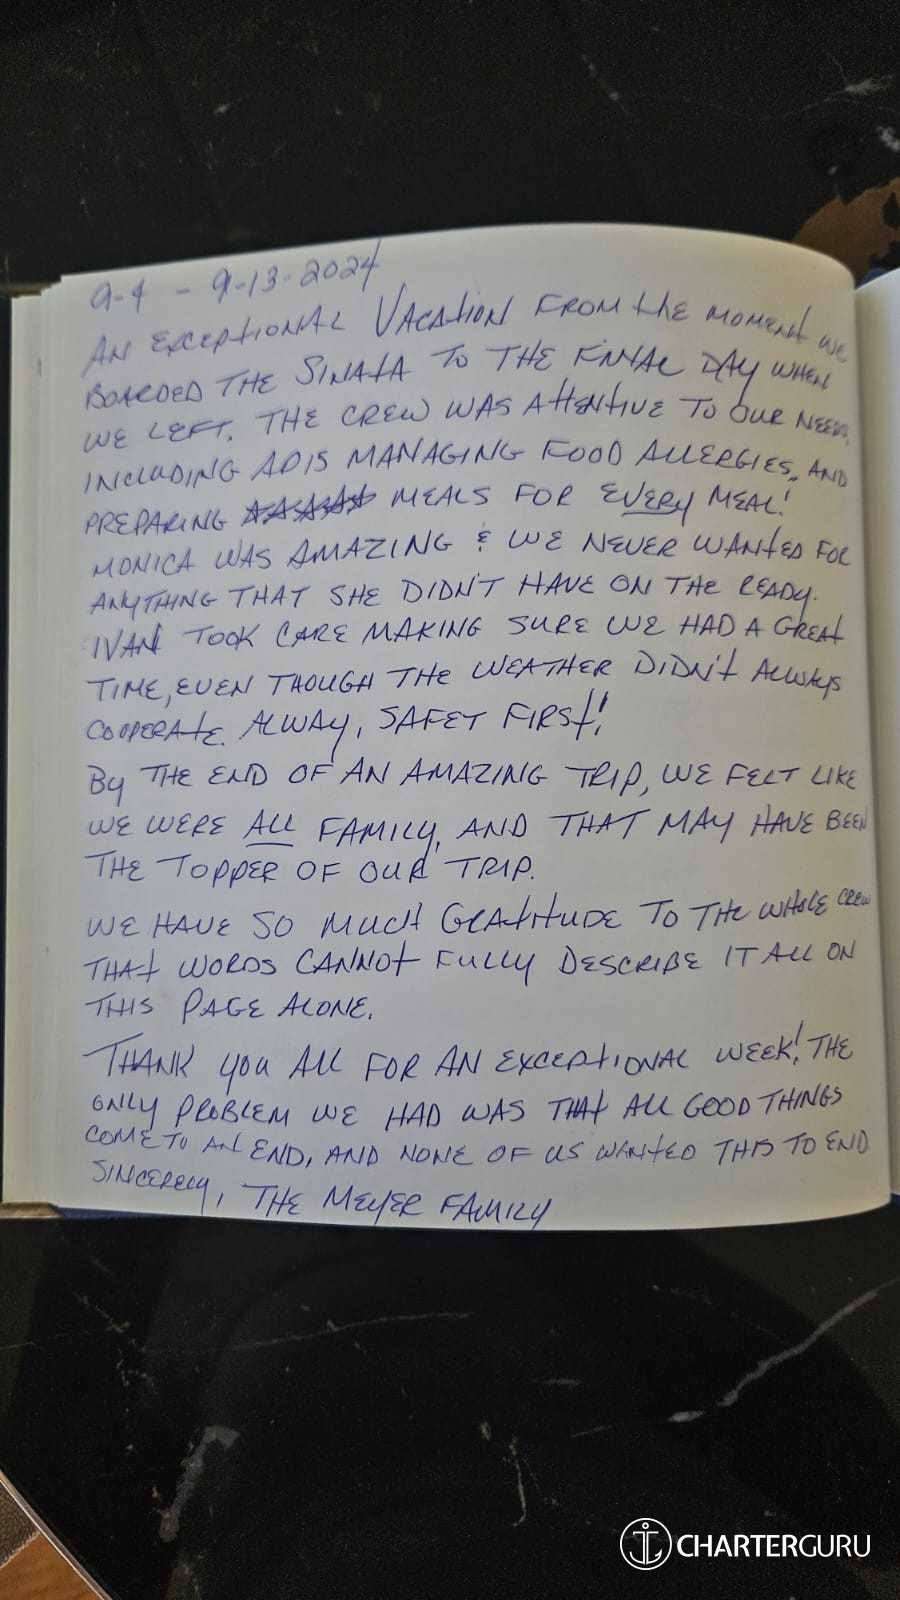 9-4 - 9-13-2024
AN EXCEPTIONAL VACATION FROM the MOMENT WE
BOARDED THE SINATA TO THE FINAL DAY WHEN
WE LEFT. THE CREW WAS ATTENTIVE TO OUR NEEDS,
INCLUDING ADIS MANAGING FOOD ALLERGIES, AND
PREPARING MEALS FOR EVERY MEAL!
MONICA WAS AMAZING & WE NEVER WANTED FOR
ANYTHING THAT SHE DIDN'T HAVE ON THE READY.
IVAN TOOK CARE MAKING SURE WE HAD A GREAT
TIME, EVEN THOUGH THE WEATHER DIDN'T ALWAYS
COOPERATE. ALWAY, SAFET FIRST!
BY THE END OF AN AMAZING TRIP, WE FELT LIKE
WE WERE ALL FAMILY, AND THAT MAY HAVE BEEN
THE TOPPER OF OUR TRIP.
WE HAVE SO MUCH GRATITUDE TO THE WHOLE CREW
THAT WORDS CANNOT FULLY DESCRIBE IT ALL ON
THIS PAGE ALONE.
THANK YOU ALL FOR AN EXCEPTIONAL WEEK! THE
ONLY PROBLEM WE HAD WAS THAT ALL GOOD THINGS
COME TO AN END, AND NONE OF US WANTED THIS TO END
SINCERELY, THE MEYER FAMILY
CHARTERGURU